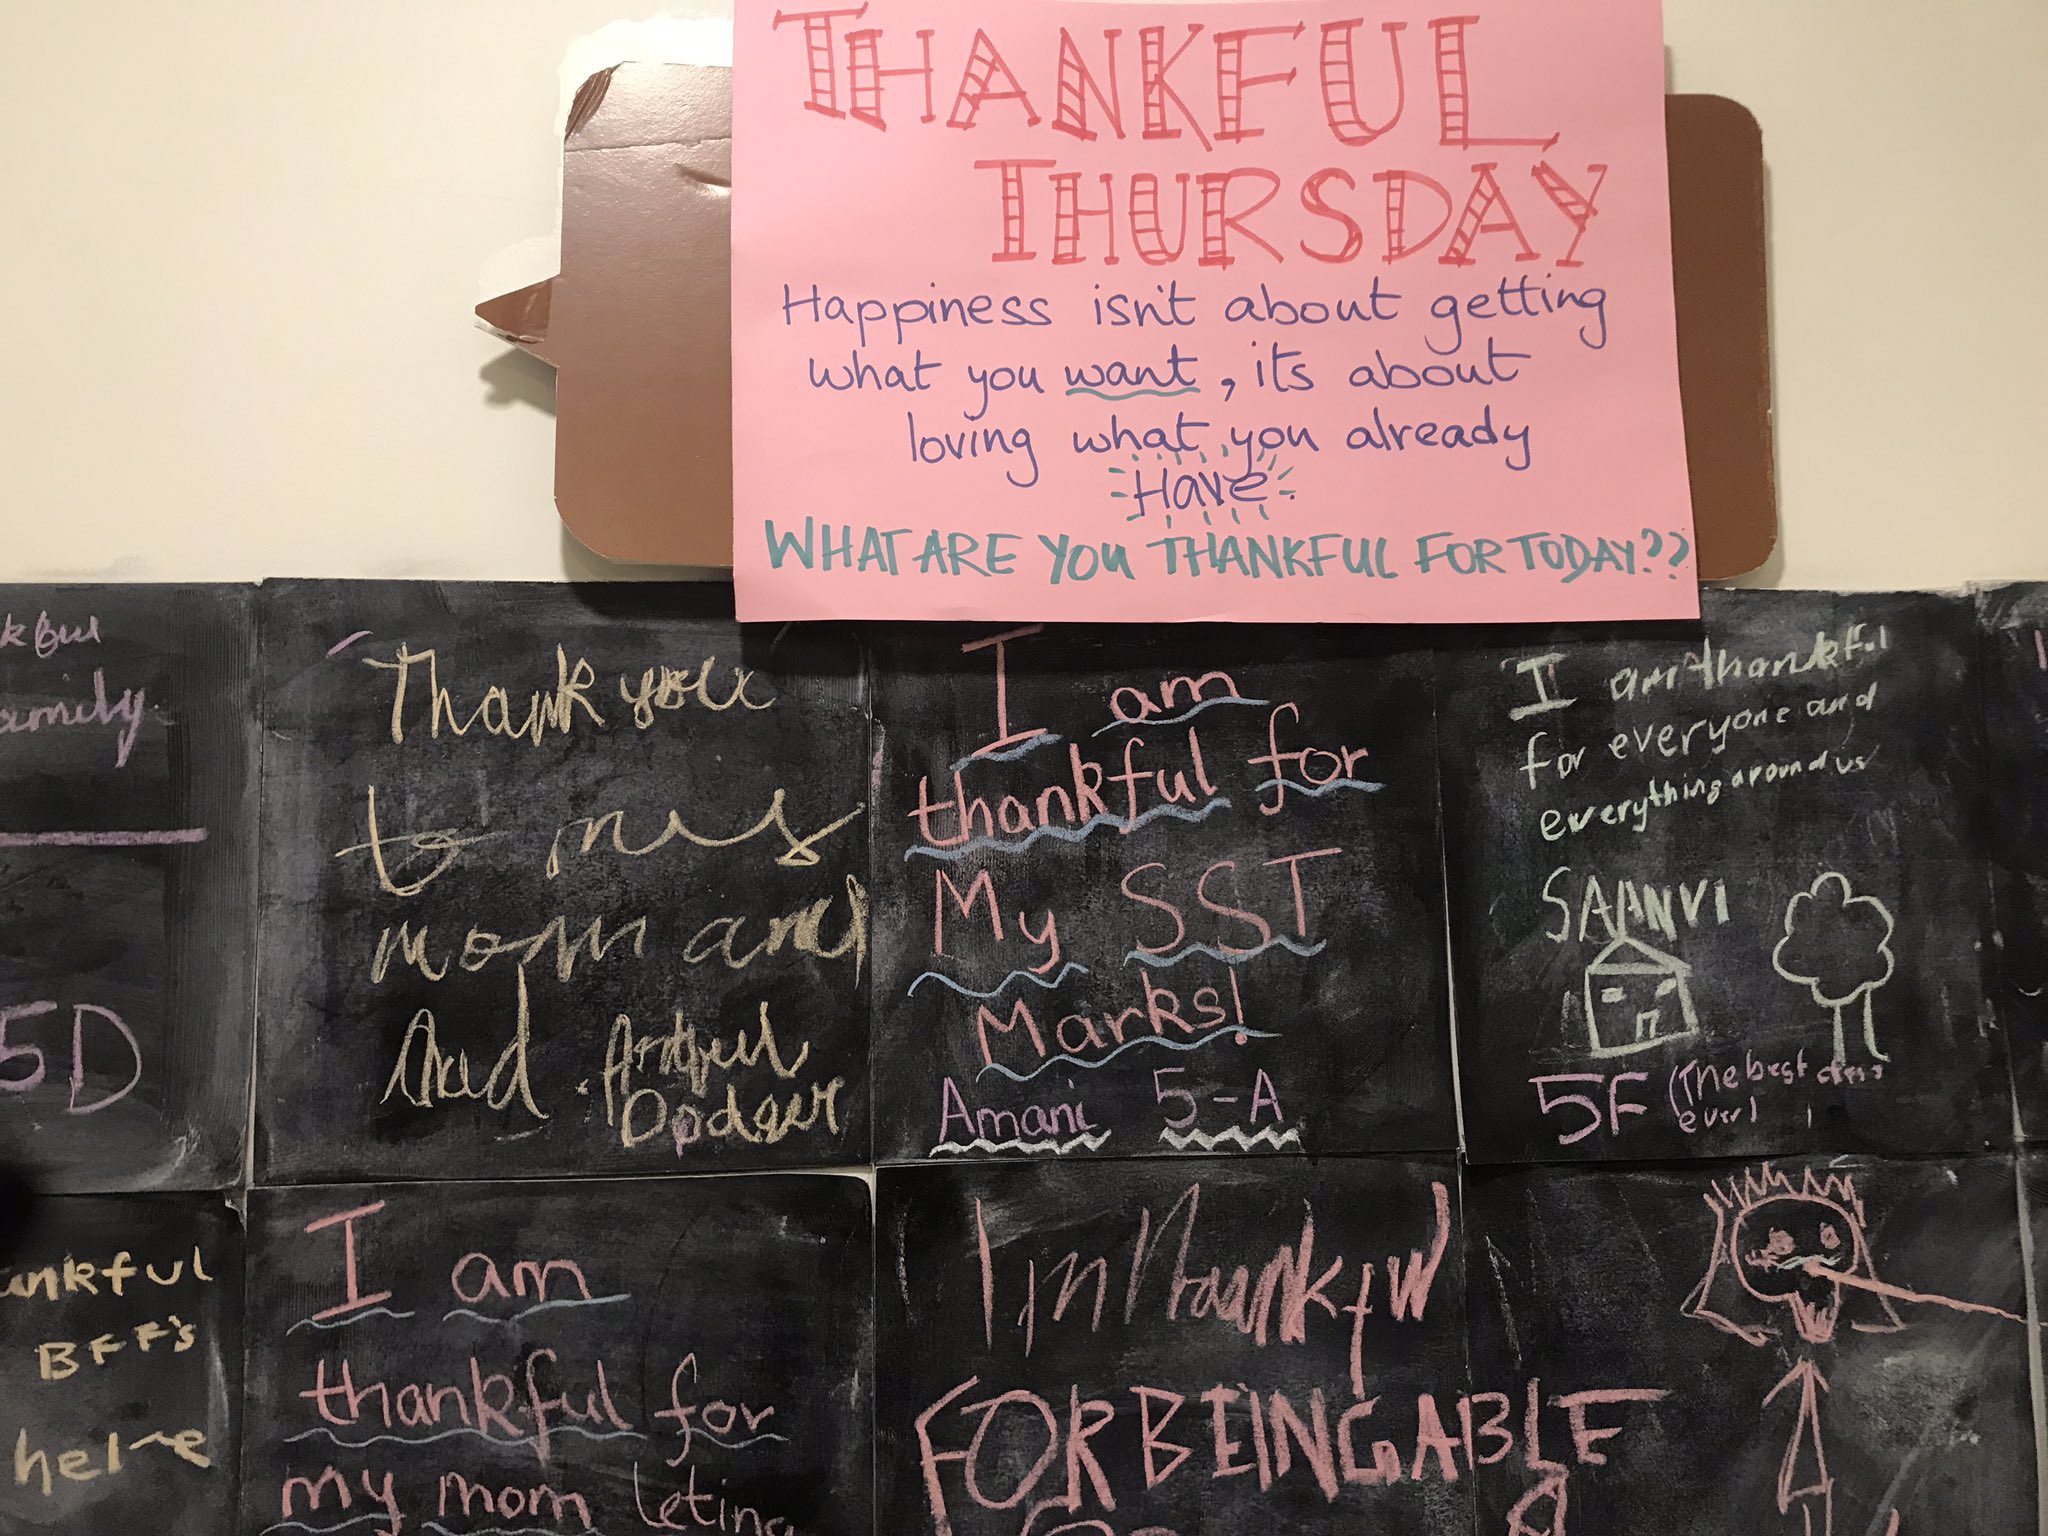 THANKFUL
THURSDAY
Happiness isn't about getting
what you want, its about
loving what you already
Have.
WHAT ARE YOU THANKFUL FOR TODAY??
5D
Thank you
to my
mom and
dad . Artful
Dodger
I am
thankful for
My SST
Marks!
Amani 5-A
I am thankful
for everyone and
everything around us
SAANVI
5F (The best class
ever)
BFF's
here
I am
thankful for
my mom leting
Im Thankful
FOR BEING ABLE